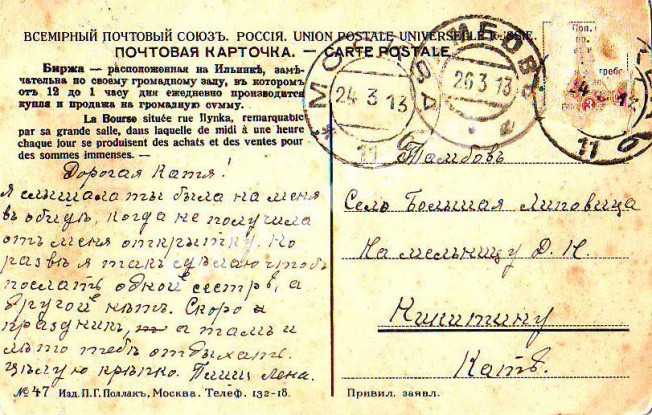 ВСЕМІРНЫЙ ПОЧТОВЫЙ СОЮЗЪ. РОССІЯ. UNION POSTALE UNIVERSELLE RUSSIE.
ПОЧТОВАЯ КАРТОЧКА. — CARTE POSTALE
Биржа — расположенная на Ильинкѣ, замѣ-
чательна по своему громадному залу, въ которомъ
отъ 12 до 1 часу дня ежедневно производится
купля и продажа на громадную сумму.
La Bourse située rue Ilynka, remarquable
par sa grande salle, dans laquelle de midi à une heure
chaque jour se produisent des achats et des ventes pour
des sommes immenses. —
МОСКВА
24 3 13
11
26 3 13
24 13
11 6
Дорогая Катя!
Я слышала ты была на меня
въ обидѣ, когда не получила
отъ меня открытку. Но
развѣ я такъ сдѣлаю чтобъ
послать одной сестрѣ, а
другой нѣтъ. Скоро
праздникъ, а тамъ и
лѣто тебѣ отдыхать.
Цѣлую крѣпко. Пиши Лена.
Тамбовъ
Село Большая Липовица
На мельницу Д. Н.
Никитину
Катѣ.
№ 47 Изд. П. Г. Поллакъ, Москва. Телеф. 132-18.
Привил. заявл.